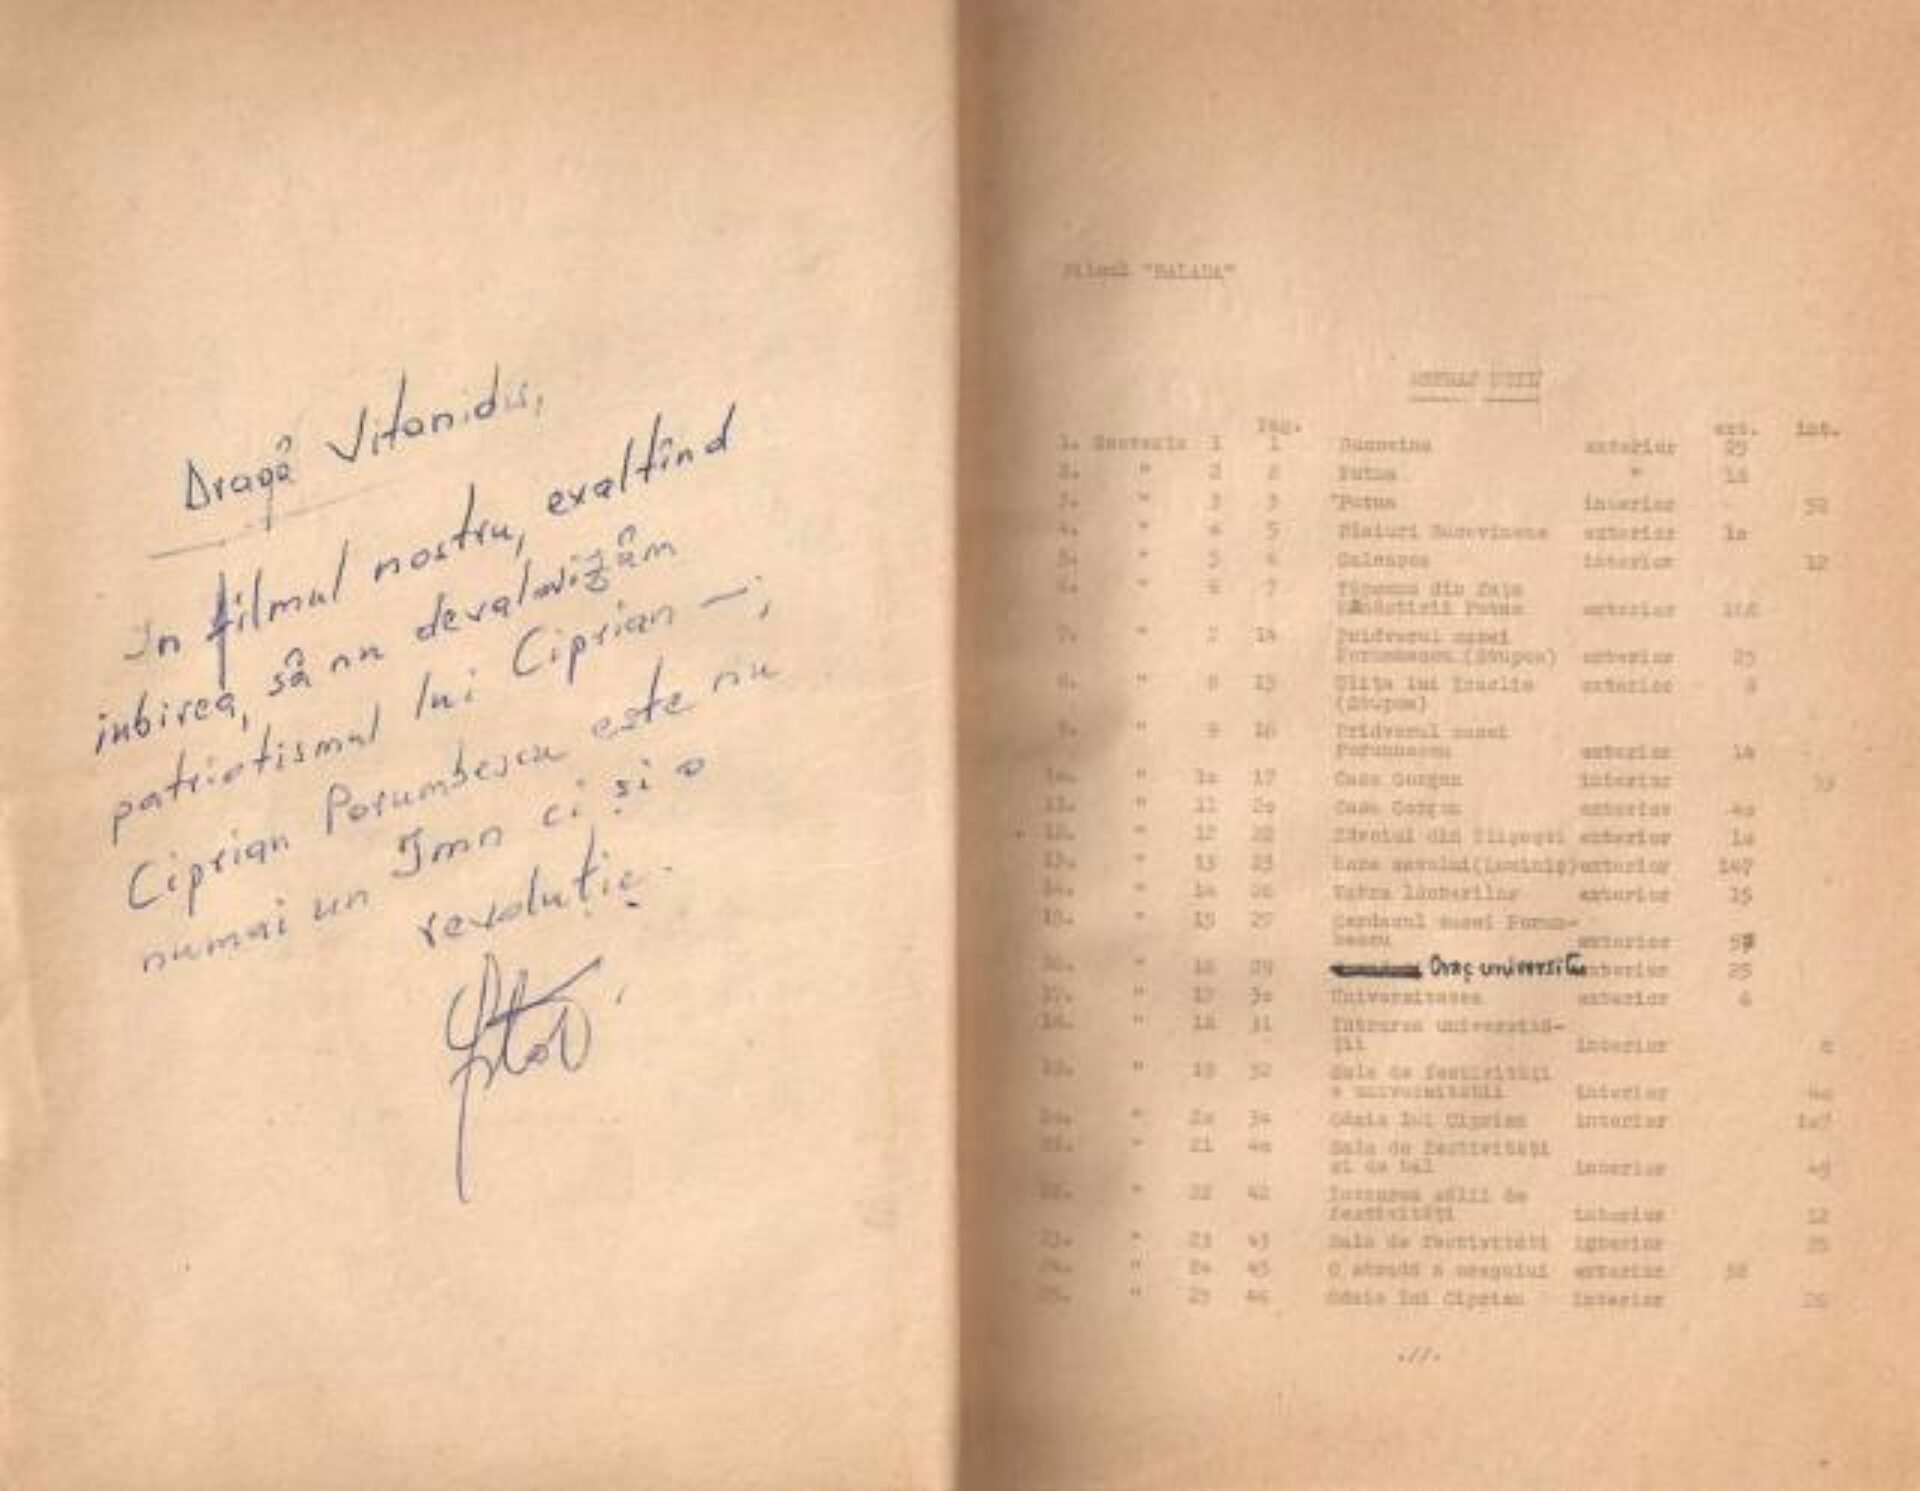 Dragă Vitanidis,
In filmul nostru, exaltînd
iubirea, să nu devalorizăm
patriotismul lui Ciprian —;
Ciprian Porumbescu este nu
numai un Imn ci și o
revoluție.
Filmul "BALADA"
Pag. ext. int.
1. Secventa 1 1 Bucovina exterior 25
2. " 2 2 Putna "
3. " 3 3 Putna interior 52
4. " 4 5 Plaiuri Bucovinene exterior 1o
5. " 5 6 interior 12
6. " 6 7 din fața
Mănăstirii Putna exterior
7. " 7 14 Pridvorul casei
Porumbescu (Stupca) exterior 25
8. " 8 15 Ulița lui exterior 8
(Stupca)
9. " 9 16 Pridvorul casei
Porumbescu exterior 14
1o. " 1o 17 Casa Gorgon interior
11. " 11 2o Casa Gorgon exterior 4o
12. " 12 22 din exterior 1o
13. " 13 23 (Luminiș) exterior 147
14. " 14 26 Vatra lăutarilor exterior 15
15. " 15 27 Cerdacul casei Porum-
bescu exterior
16. " 16 29 Oraș universit exterior 25
17. " 17 3o Universitatea exterior 4
18. " 18 31 Intrarea universită-
ții interior
19. " 19 32 Sala de festivități
a universității interior 4o
2o. " 2o 34 Odaia lui Ciprian interior 1o7
21. " 21 4o Sala de festivități
și de bal interior 45
22. " 22 42 Intrarea sălii de
festivități interior 12
23. " 23 43 Sala de festivități interior 25
24. " 24 45 O stradă a orașului exterior 38
25. " 25 46 Odaia lui Ciprian interior 26
.//.